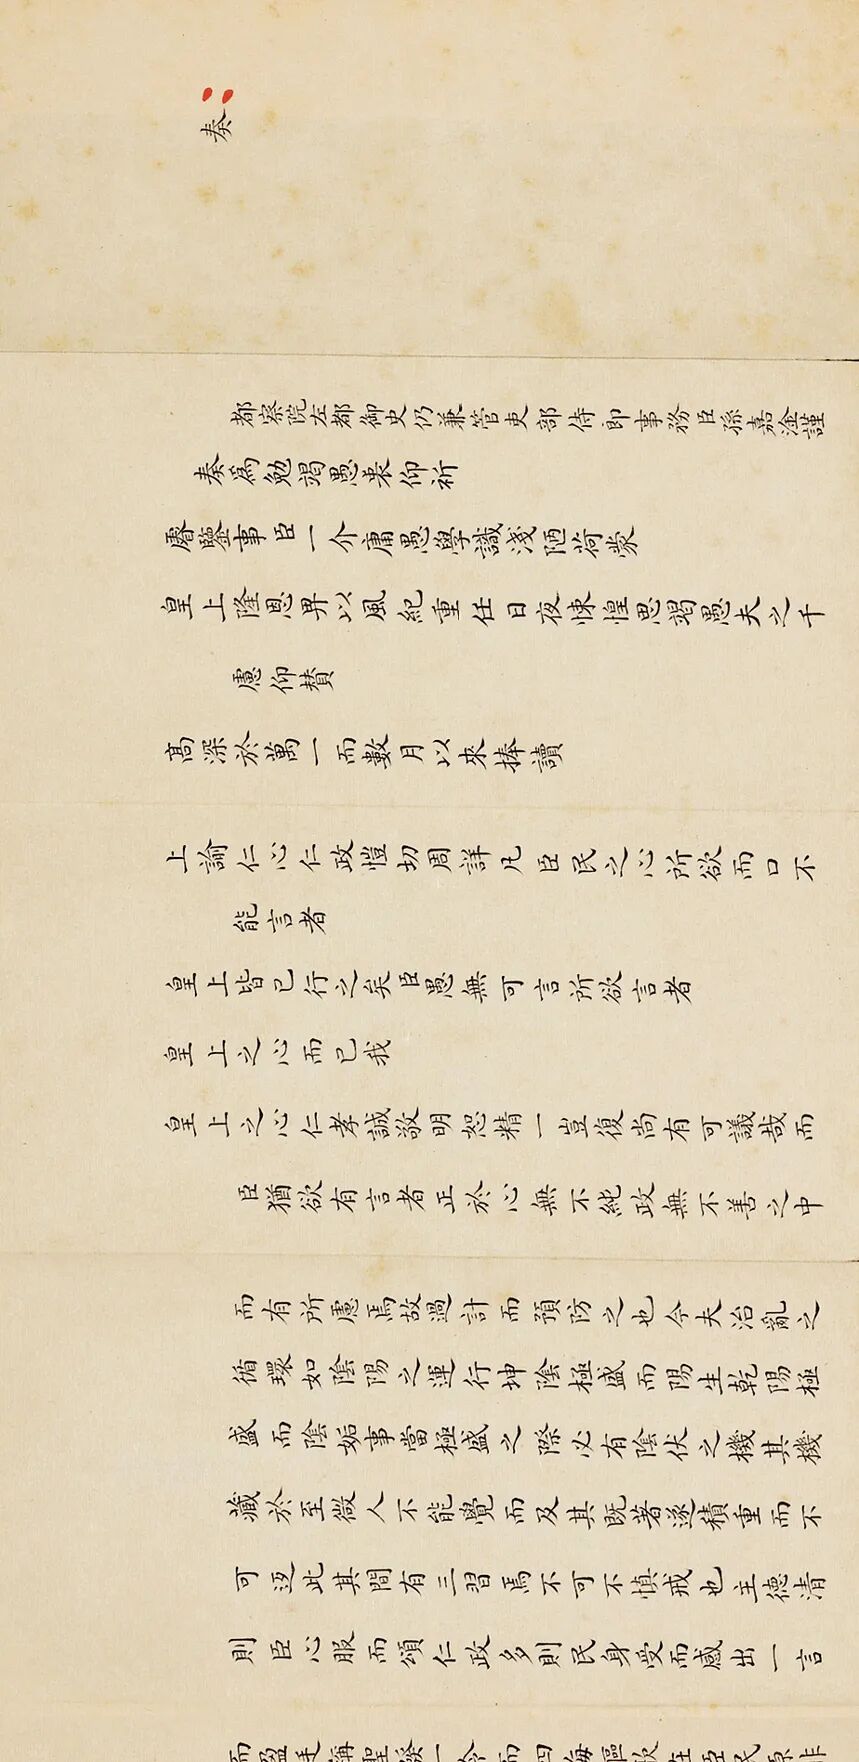 奏
都察院左都御史仍兼管吏部侍郎事務臣孫嘉淦謹
奏爲勉竭愚衷仰祈
睿鑒事臣一介庸愚學識淺陋荷蒙
皇上隆恩畀以風紀重任日夜悚惶思竭愚夫之千
慮仰贊
高深於萬一而數月以來捧讀
上諭仁心仁政愷切周詳凡臣民之心所欲而口不
能言者
皇上皆已行之矣臣愚無可言所欲言者
皇上之心而已我
皇上之心仁孝誠敬明恕精一豈復尚有可議哉而
臣猶欲有言者正於心無不純政無不善之中
而有所慮焉故過計而預防之也今夫治亂之
循環如陰陽之運行坤陰極盛而陽生乾陽極
盛而陰姤事當極盛之際必有陰伏之機其機
藏於至微人不能覺而及其既著遂積重而不
可返此其間有三習焉不可不慎戒也主德清
則臣心服而頌仁政多則民身受而感出一言
而盈廷稱聖發一令而四海謳歌在臣民原非